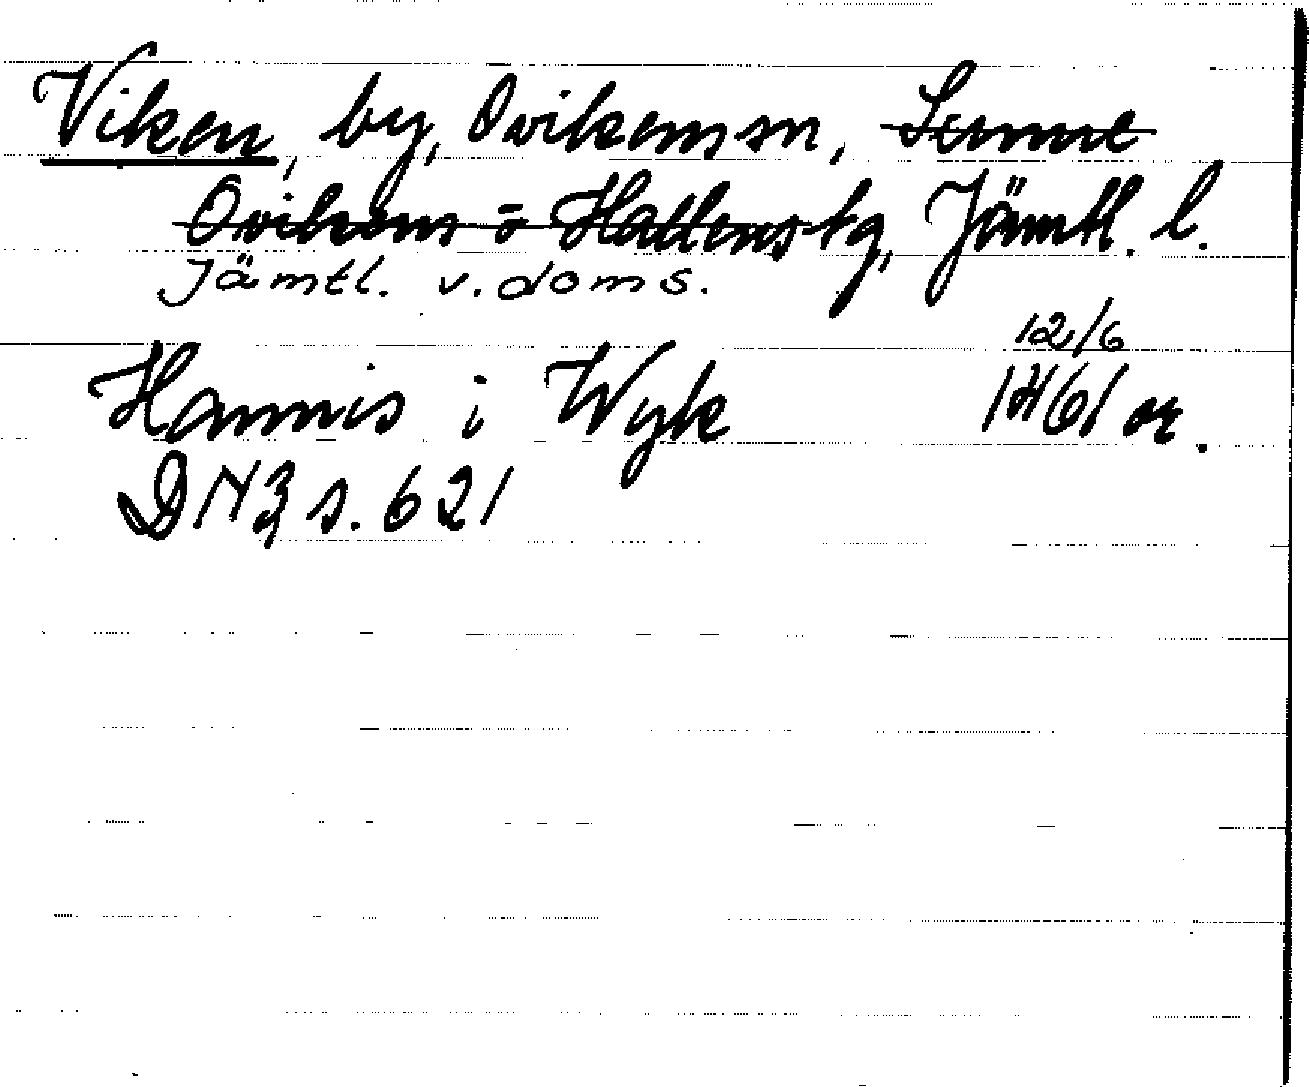 Viken, by, Ovikens sn, Sunne
Ovikens o Hallens tg, Jämtl. l.
Jämtl. v. doms.
12/6
Hannis i Wyk 1461 or.
DN 3 s. 621